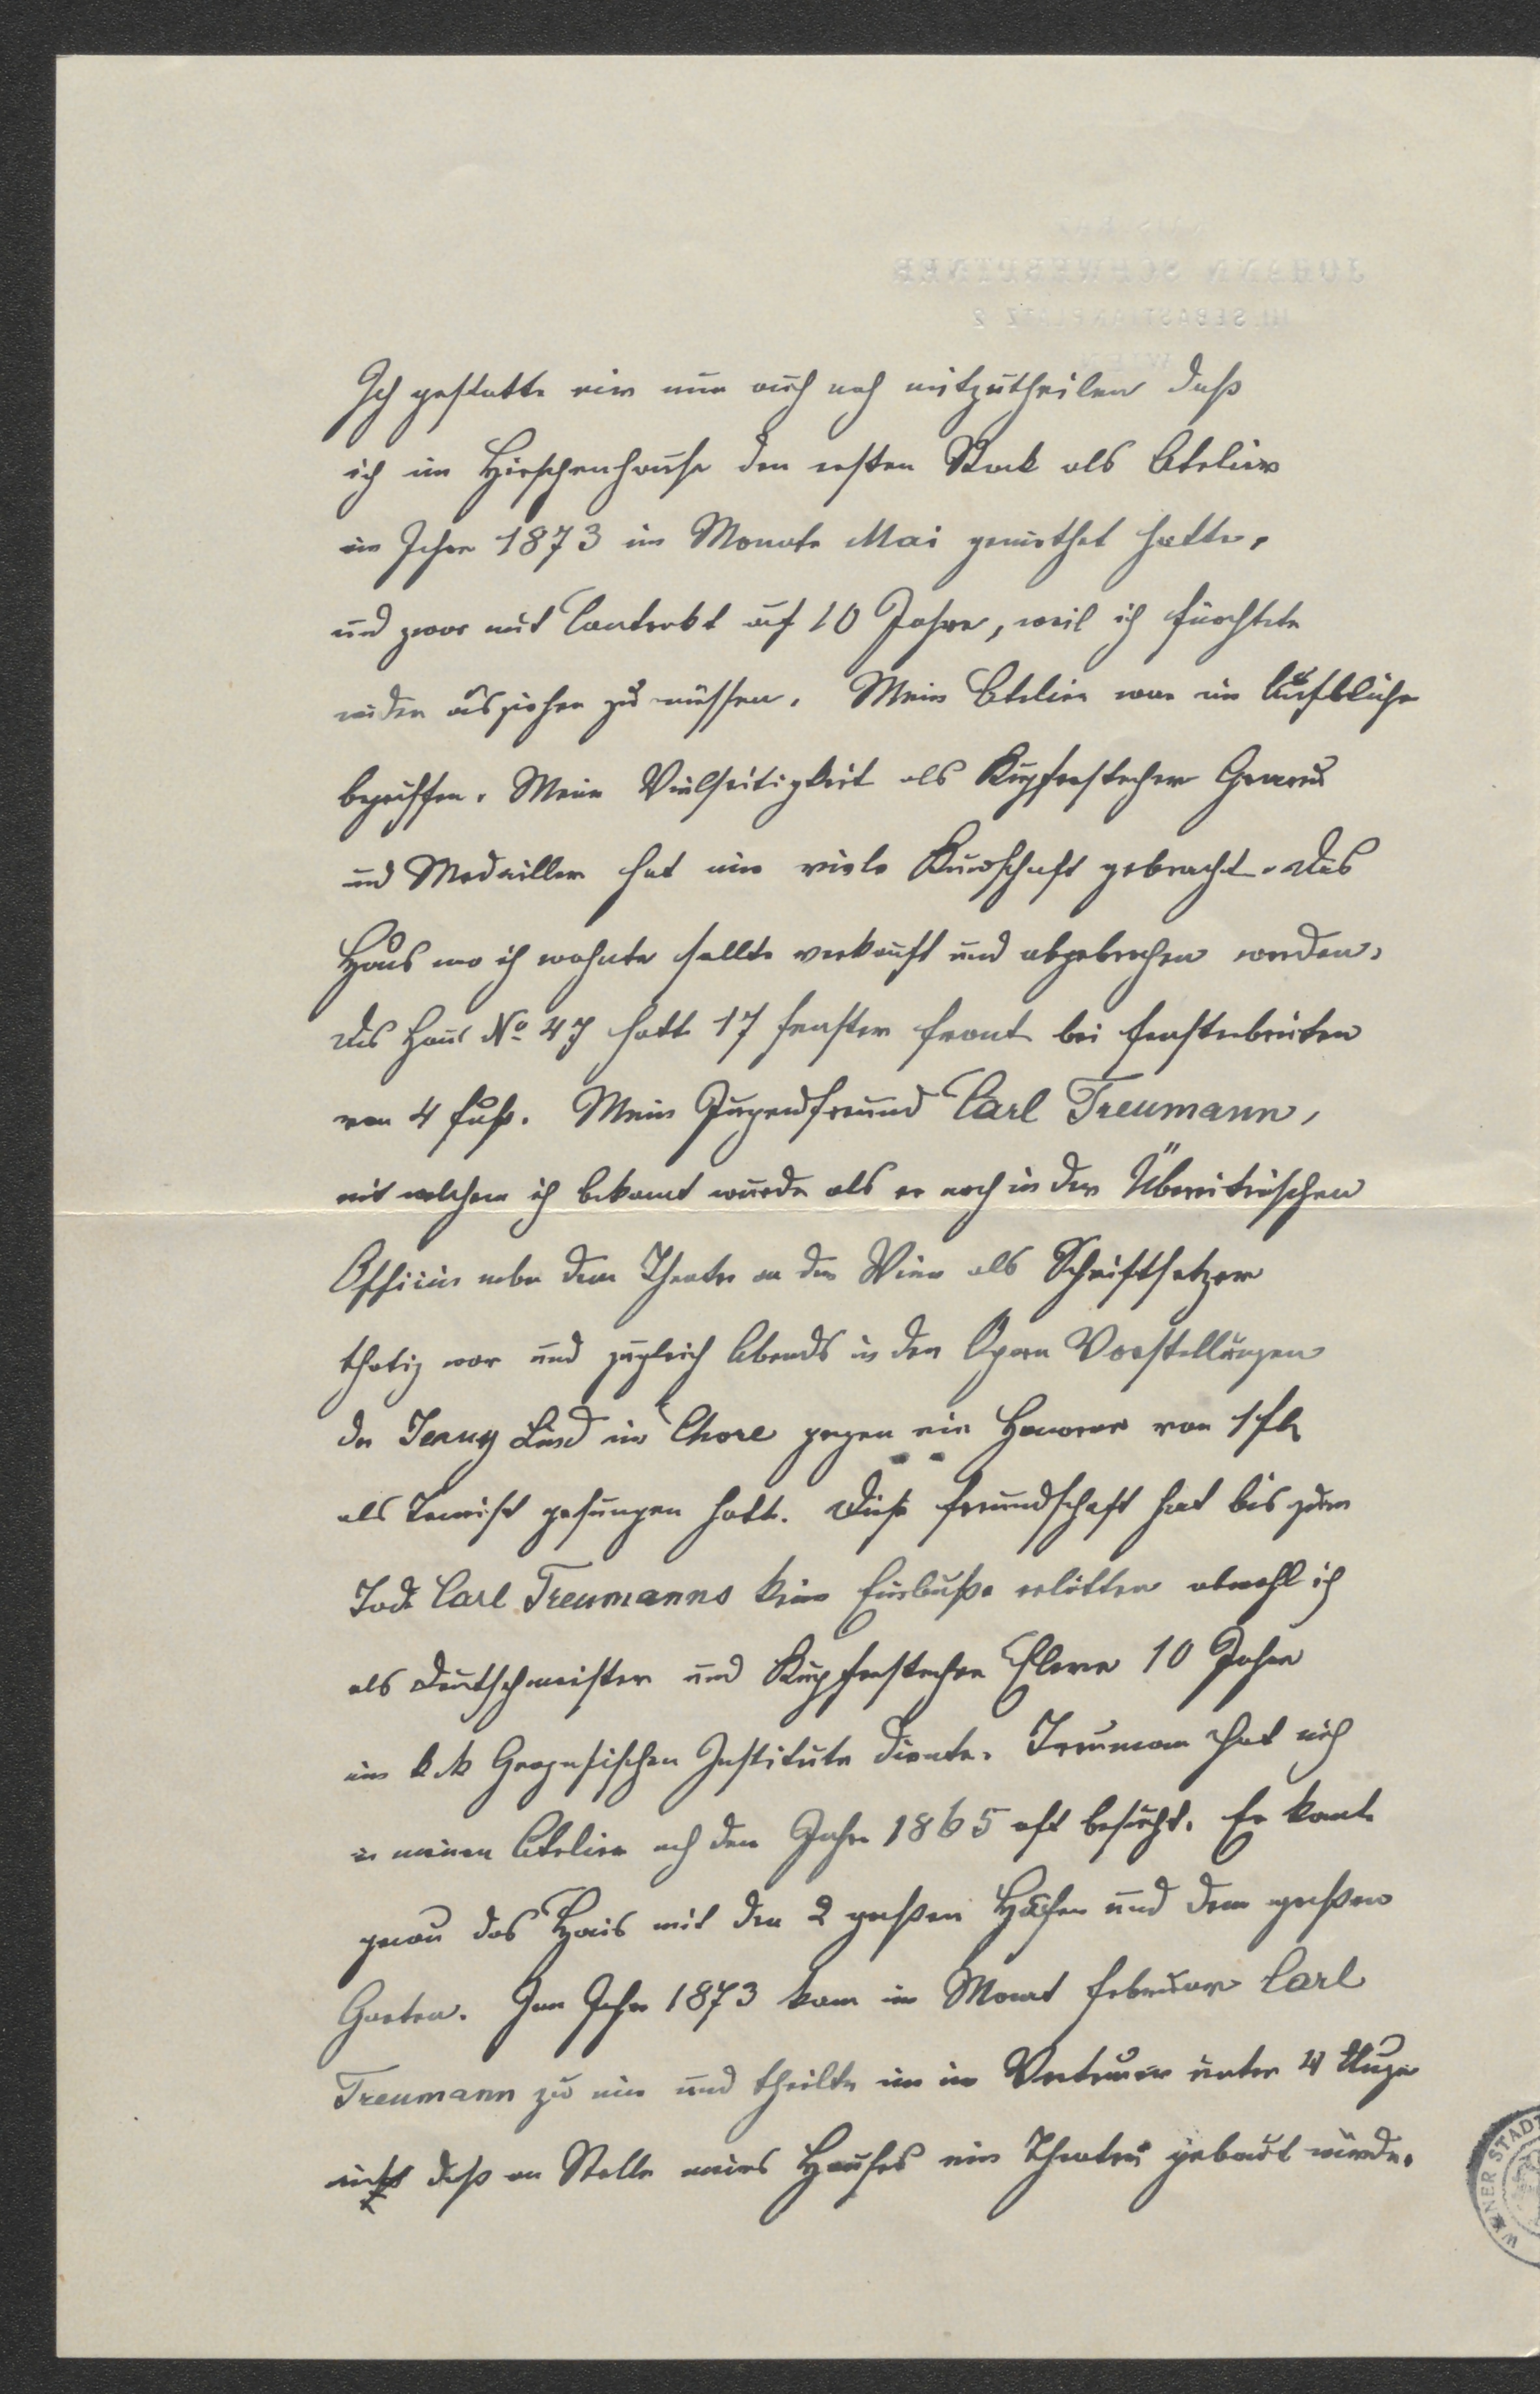 Ich gestatte mir nun auch noch mitzutheilen daß
ich im Hirschenhause den ersten Stock als Atelier
im Jahre 1873 im Monate Mai gemiethet hatte,
und zwar mit Contrakt auf 10 Jahre, weil ich fürchtete
wieder ausziehen zu müssen. Mein Atelier war im Aufblühen
begriffen. Meine Vielseitigkeit als Kupferstecher Graveur
und Medailleur hat mir viele Kundschaft gebracht. Das
Haus wo ich wohnte sollte verkauft und abgebrochen werden.
Das Haus No 47 hatte 17 Fenster Front bei Fensterbreiten
von 4 Fuß. Mein Jugendfreund Carl Treumann,
mit welchem ich bekannt wurde als er noch in der Überreiterischen
Officin neben dem Theater an der Wien als Schriftsetzer
thätig war und zugleich Abends in den Opern Vorstellungen
der Jenny Lind im Chore gegen ein Honorar von 1 fl
als Tenorist gesungen hatte. Diese Freundschaft hat bis zum
Tode Carl Treumanns keine Einbuße erlitten obwohl ich
als Deutschmeister und Kupferstecher Eleve 10 Jahre
im k.k. Geografischen Institute diente. Treumann hat mich
in meinem Atelier nach dem Jahre 1865 oft besucht. Er kannte
genau das Haus mit den 2 großen Höfen und dem großen
Garten. Im Jahre 1873 kam im Monat Februar Carl
Treumann zu mir und theilte mir im Vertrauen unter 4 Augen
mit daß an Stelle meines Hauses ein Theater gebaut würde.
JOHANN SCHWERDTNER
III. SEBASTIANPLATZ 2
WIEN
WIENER STADT